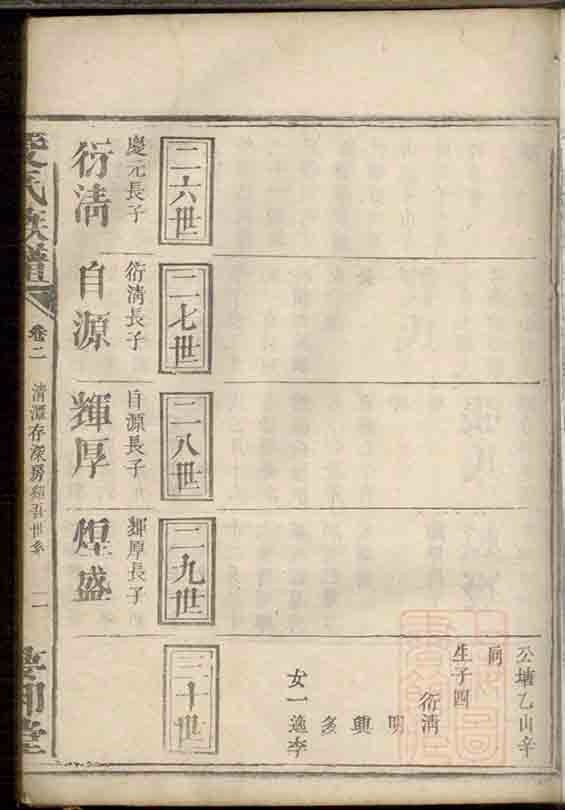 公塘乙山辛
向
生子四
衍清
明
興
多
女一適李
二六世
二七世
二八世
二九世
三十世
慶元長子
衍清
衍清長子
自源
自源長子
輝厚
輝厚長子
煌盛
氏族譜
卷二
清潭存深房
世系
二